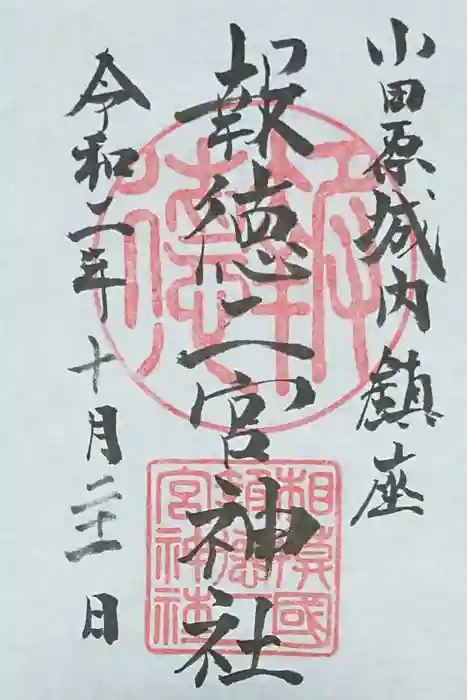 小田原城内鎮座
報徳二宮神社
令和二年十月二十一日
報徳
相模國
報徳二
宮神社